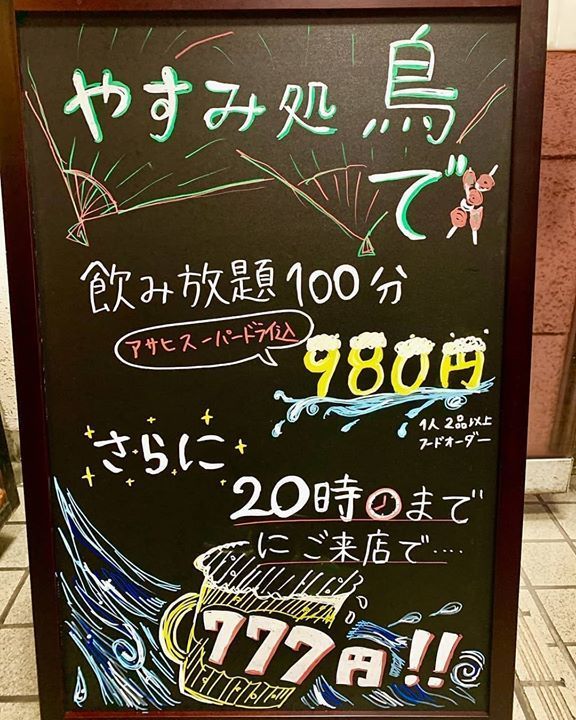 やすみ処 鳥
で
飲み放題100分
アサヒスーパードライ込
980円
1人 2品以上
フードオーダー
さらに
20時まで
にご来店で....
777円!!